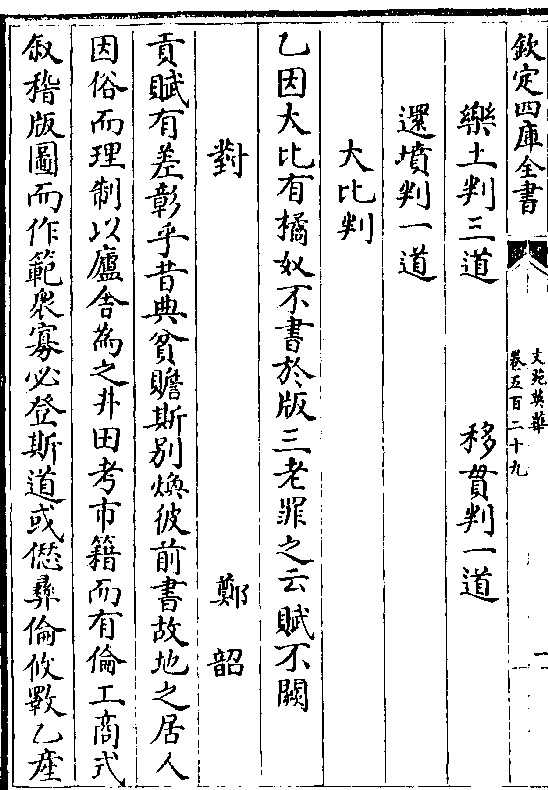 欽定四庫全書
文苑英華
卷五百二十九
一
樂土判三道 移貫判一道
還墳判一道
大比判
乙因大比有橘奴不書於版三老罪之云賦不闕
對 鄭韶
貢賦有差彰乎昔典貧贍斯别煥彼前書故地之居人
因俗而理制以廬舍為之井田考市籍而有倫工商式
叙稽版圖而作範衆寡必登斯道或愆彝倫攸斁乙產